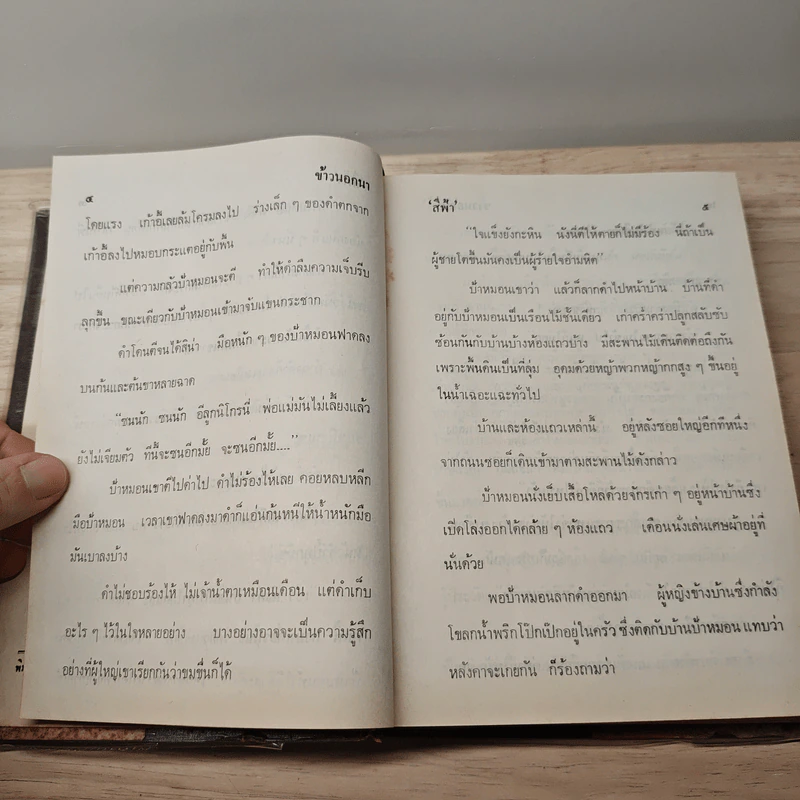 ข้าวนอกนา
๔
โดยแรง เก้าอี้เลยล้มโครมลงไป ร่างเล็ก ๆ ของดำตกจาก
เก้าอี้ลงไปหมอบกระแตอยู่กับพื้น
แต่ความกลัวป้าหมอนจะตี ทำให้ดำลืมความเจ็บรีบ
ลุกขึ้น ขณะเดียวกับป้าหมอนเข้ามาจับแขนกระชาก
ดำโดนตีจนได้สิน่า มือหนัก ๆ ของป้าหมอนฟาดลง
บนก้นและต้นขาหลายฉาด
“ซนนัก ซนนัก อีลูกนิโกรนี่ พ่อแม่มันไม่เลี้ยงแล้ว
ยังไม่เจียมตัว ทีนี้จะซนอีกมั้ย จะซนอีกมั้ย....”
ป้าหมอนเขาตีไปด่าไป ดำไม่ร้องไห้เลย คอยหลบหลีก
มือป้าหมอน เวลาเขาฟาดลงมาดำก็แอ่นก้นหนีให้น้ำหนักมือ
มันเบาลงบ้าง
ดำไม่ชอบร้องไห้ ไม่เจ้าน้ำตาเหมือนเดือน แต่ดำเก็บ
อะไร ๆ ไว้ในใจหลายอย่าง บางอย่างอาจจะเป็นความรู้สึก
อย่างที่ผู้ใหญ่เขาเรียกกันว่าขมขื่นก็ได้
‘สีฟ้า’
๕
“ใจแข็งยังกะหิน นังนี่ตีให้ตายก็ไม่มีร้อง นี่ถ้าเป็น
ผู้ชายโตขึ้นมันคงเป็นผู้ร้ายใจอำมหิต”
ป้าหมอนเขาว่า แล้วก็ลากดำไปหน้าบ้าน บ้านที่ดำ
อยู่กับป้าหมอนเป็นเรือนไม้ชั้นเดียว เก่าคร่ำคร่าปลูกสลับซับ
ซ้อนกันกับบ้านบ้างห้องแถวบ้าง มีสะพานไม้เดินติดต่อถึงกัน
เพราะพื้นดินเป็นที่ลุ่ม อุดมด้วยหญ้าพวกหญ้ากกสูง ๆ ขึ้นอยู่
ในน้ำเฉอะแฉะทั่วไป
บ้านและห้องแถวเหล่านี้ อยู่หลังซอยใหญ่อีกทีหนึ่ง
จากถนนซอยก็เดินเข้ามาตามสะพานไม้ดังกล่าว
ป้าหมอนนั่งเย็บเสื้อโหลด้วยจักรเก่า ๆ อยู่หน้าบ้านซึ่ง
เปิดโล่งออกได้คล้าย ๆ ห้องแถว เดือนนั่งเล่นเศษผ้าอยู่ที่
นั่นด้วย
พอป้าหมอนลากดำออกมา ผู้หญิงข้างบ้านซึ่งกำลัง
โขลกน้ำพริกโป๊กเป๊กอยู่ในครัว ซึ่งติดกับบ้านป้าหมอน แทบว่า
หลังคาจะเกยกัน ก็ร้องถามว่า